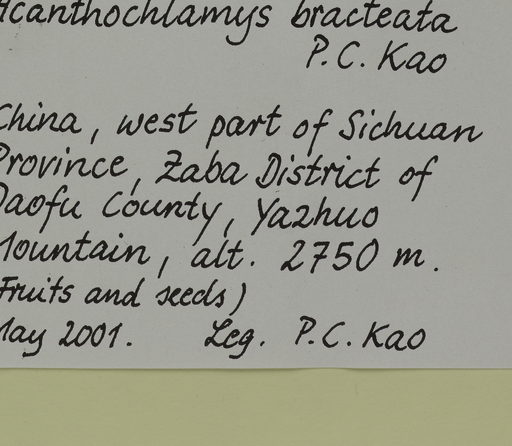 Acanthochlamys bracteata
P.C. Kao
China, west part of Sichuan
Province, Zaba District of
Daofu County, Yazhuo
Mountain, alt. 2750 m.
(Fruits and seeds)
May 2001. Leg. P.C. Kao